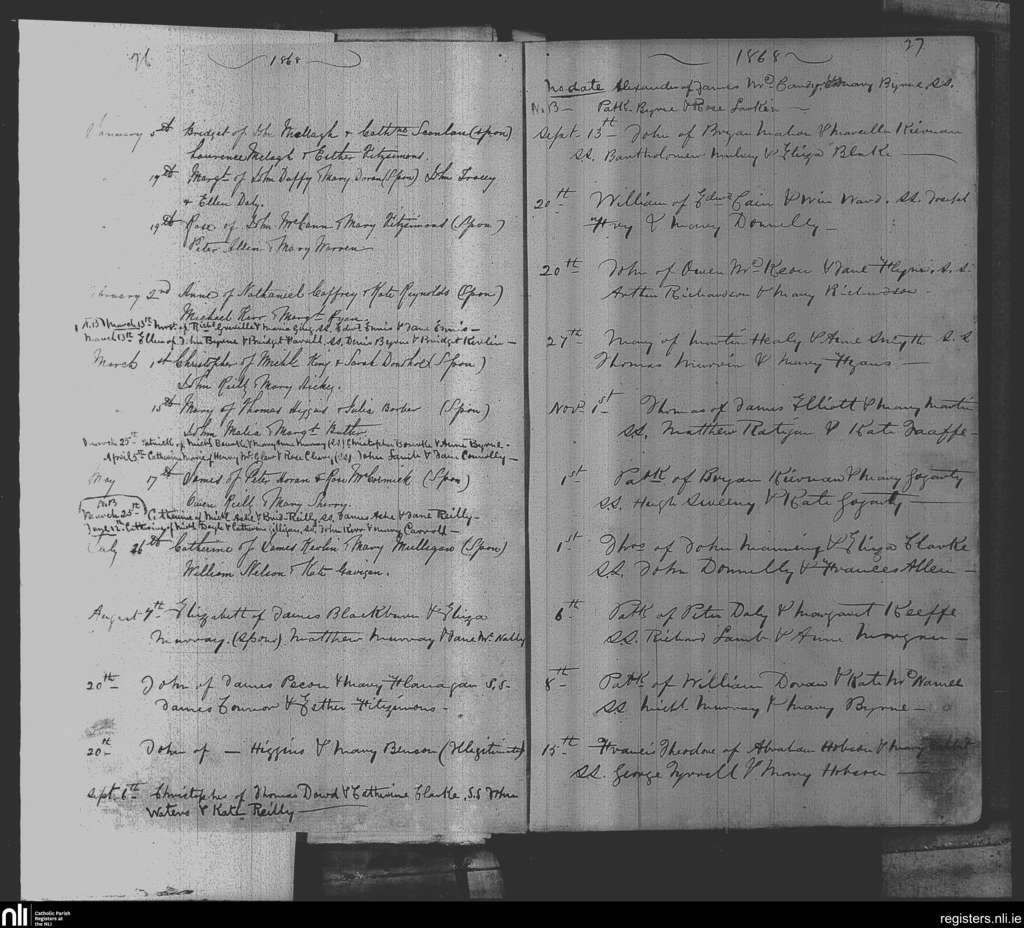 26
1868
January 5th Bridget of Jon Mellagh & Cathne Scanlan (spon)
Laurence Melagh & Esther Fitzsimons.
19th Margt of John Duffy & Mary Doran (Spon) John Tracey
& Ellen Daly.
19th Rose of John McCann & Mary Fitzsimons (Spon)
Peter Allen & Mary Warren
February 2nd Anne of Nathaniel Caffrey & Kate Reynolds (Spon)
Michael Kerr & Margt Ryan
N.B March 13th of Richd & Maria SS. Edwd Ennis & Jane Ennis
March 13th Ellen of John Byrne & Bridget SS. Denis Byrne & Bridget Kevlin
March 1st Christopher of Michl King & Sarah (Spon)
John Reilly & Mary Hickey.
15th Mary of Thomas Higgins & Julia Barber (Spon)
John Malia & Margt Butler
March 25th of Michl & Mary Anne (SS) Christopher Bourke & Anne Byrne
April 5th Catherine Marie of Henry & Rose (SS) John Lamb & Jane Connolly
May 17th James of Peter Horan & Rose McCormick (Spon)
Owen Reilly & Mary Sherry.
N.B
March 25th Catherine of Michl Ashe & Brid. Reilly, SS. James Ashe & Jane Reilly
June 12th Catherine of Michl Doyle & Catherine Gilligan, SS. John Kerr & Mary Carroll
July 26th Catherine of James Kevlin & Mary Mulligan (Spon)
William Nelson & Kate Gavigan.
August 7th Elizabeth of James Blackburn & Eliza
Murray. (Spons). Matthew Murray & Jane McNally
20th John of James Pecon & Mary Flanagan S.S.
James Connor & Esther Fitzsimons
20th John of — Higgins & Mary Benson (Illegitimate)
Sept. 6th Christopher of Thomas Dowd & Catherine Clarke, S.S John
Waters & Kate Reilly
27
1868
No date Alexander of James & Mary Byrne, SS.
N.B — Patk Byrne & Rose Larkin
Sept. 13th John of Bryan Mahon & Marcella Kiernan
SS. Bartholomew Mulvey & Eliza Blake
20th William of Edwd Cain & Win Ward. SS. Joseph
& Mary Donnelly
20th John of Owen McKeon & Jane S.S.
Arthur Richardson & Mary Richardson
27th Mary of Martin Healy & Anne Smyth S.S
Thomas & Mary
Novr 1st Thomas of James Elliott & Mary Martin
SS. Matthew Ratigan & Kate Taaffe
1st Patk of Bryan Kiernan & Mary Gogarty
SS. Hugh Sweeny & Kate Gogarty
1st Thos of John Manning & Eliza Clarke
SS. John Donnelly & Frances Allen
6th Patk of Peter Daly & Margaret Keeffe
SS. Richard Lamb & Anne Morgan
8th Patk of William Doran & Kate McNamee
SS Michl Murray & Mary Byrne
15th Francis Theodore of Abraham Hobson & Mary
SS. George Tyrrell & Mary Hobson
nli
Catholic Parish
Registers at
the NLI
registers.nli.ie